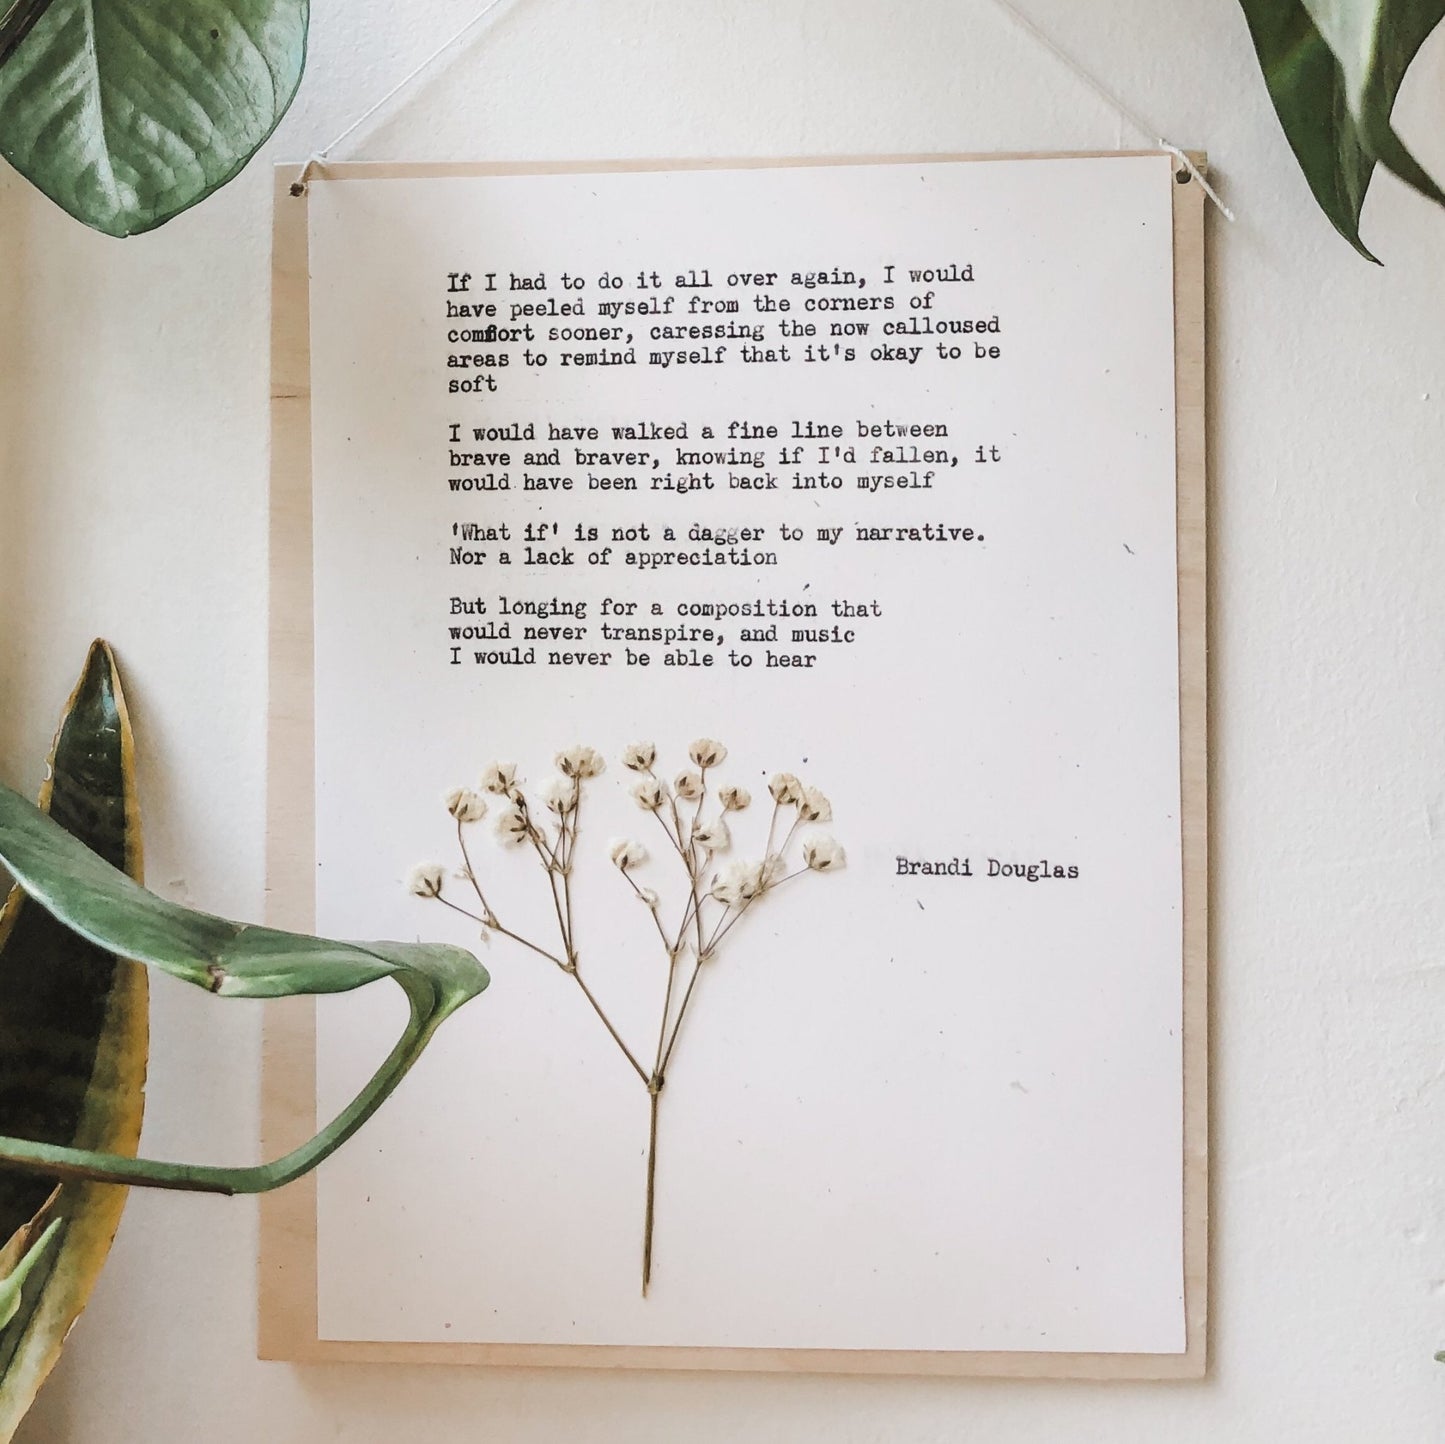 If I had to do it all over again, I would
have peeled myself from the corners of
comfort sooner, caressing the now calloused
areas to remind myself that it's okay to be
soft
I would have walked a fine line between
brave and braver, knowing if I'd fallen, it
would have been right back into myself
'What if' is not a dagger to my narrative.
Nor a lack of appreciation
But longing for a composition that
would never transpire, and music
I would never be able to hear
Brandi Douglas